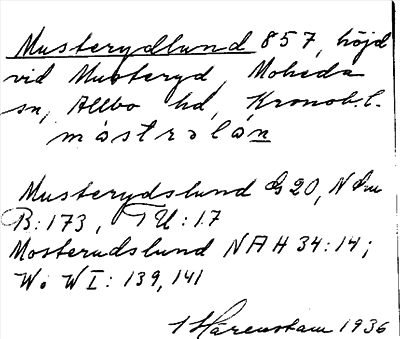 Musterydlund 857, höjd
vid Musteryd, Moheda
sn, Allbo hd, Kronob. l.
måstralån
Musterydslund G 20, N
B: 173, TU: 17
Mosterudslund NAH 34: 14;
WI: 139, 141
Harenstam 1936